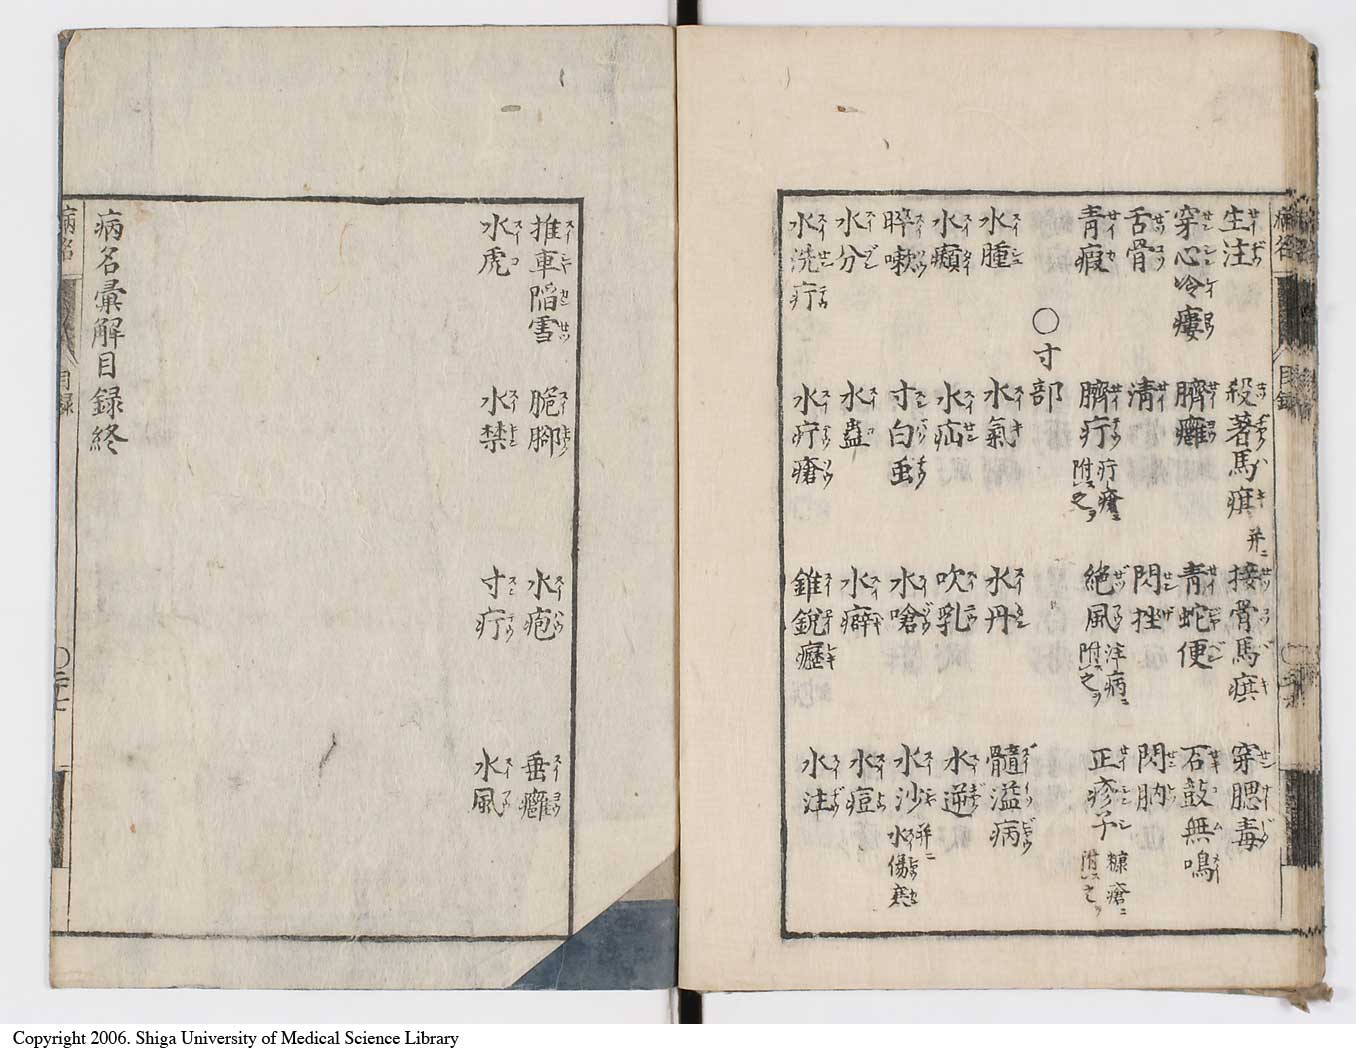 生注 殺著馬瘼 并ニ 接骨馬瘼 穿腮毒
穿心冷瘻 臍癰 青蛇便 石鼓無鳴
舌骨 清 閃挫 閃肭
青瘕 臍疔 疔瘡ニ附ス之ヲ 絶風 注病ニ附ス之ヲ 正疹子 糠瘡ニ附ス之ヲ
〇寸部
水腫 水氣 水丹 髓溢病
水癩 水疝 吹乳 水逆
啐嗽 寸白虫 水嗆 水沙 并ニ水傷寒
水分 水蠱 水癖 水痘
水洗疔 水疔瘡 錐銳癧 水注
病名 目録
推車陷雪 脆腳 水疱 垂癰
水虎 水禁 寸疔 水風
病名彙解目録終
病名 目録 〇二十七
Copyright 2006. Shiga University of Medical Science Library